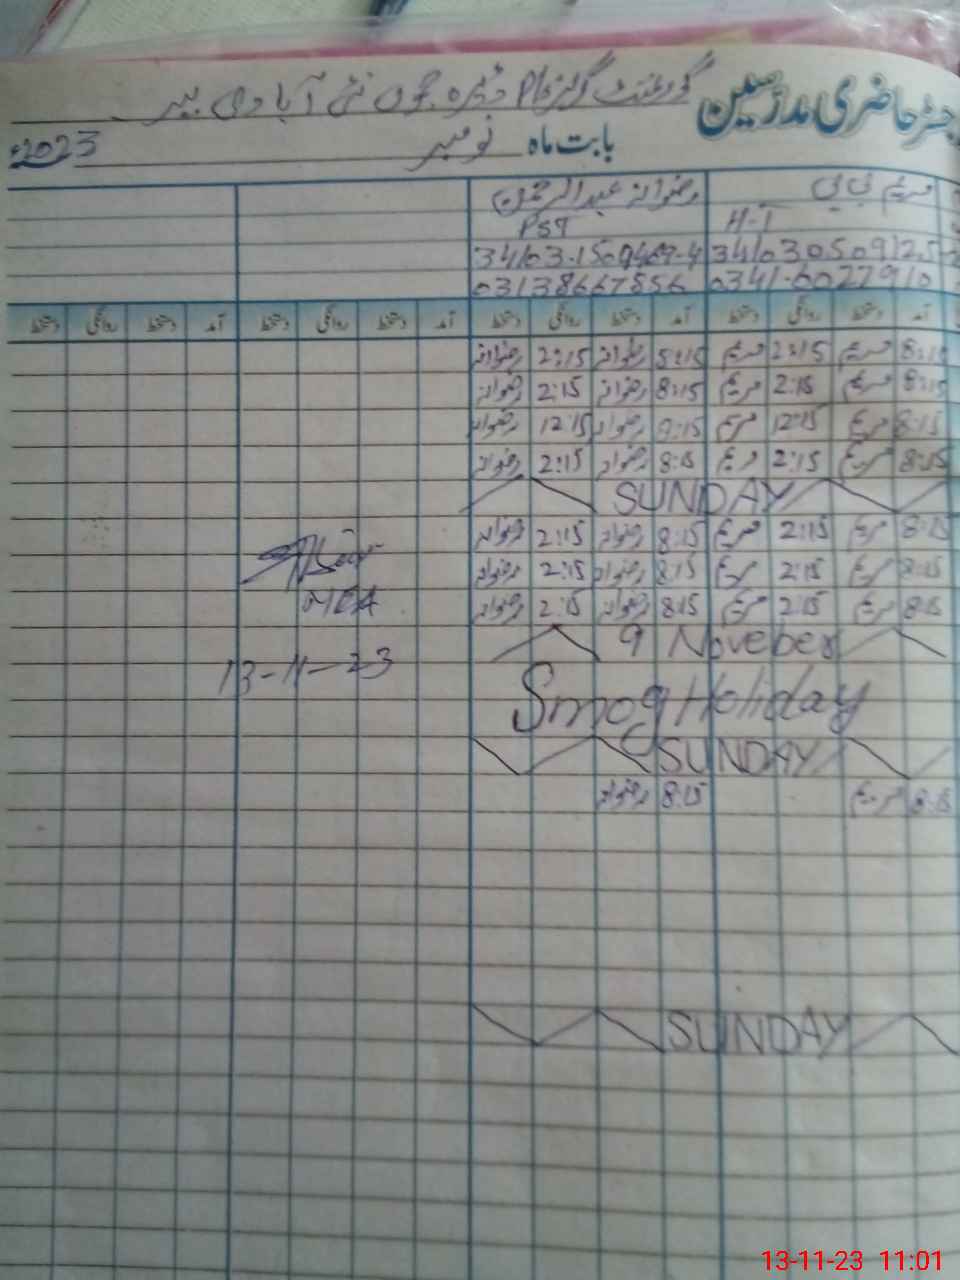 رجسٹر حاضری مدرسین گورنمنٹ گرلز
بابت ماہ نومبر 2023ء
مریم بی بی رضوانہ عبدالرحمن
H-T PST
0341-6027910 03138667856
آمد دستخط روانگی دستخط آمد دستخط روانگی دستخط آمد دستخط روانگی دستخط آمد دستخط روانگی دستخط
8:15 مریم 2:15 مریم 8:15 رضوانہ 2:15 رضوانہ
8:15 مریم 2:15 مریم 8:15 رضوانہ 2:15 رضوانہ
8:15 مریم 12:15 مریم 8:15 رضوانہ 12:15 رضوانہ
8:15 مریم 2:15 مریم 8:15 رضوانہ 2:15 رضوانہ
SUNDAY
8:15 مریم 2:15 مریم 8:15 رضوانہ 2:15 رضوانہ
8:15 مریم 2:15 مریم 8:15 رضوانہ 2:15 رضوانہ
8:15 مریم 2:15 مریم 8:15 رضوانہ 2:15 رضوانہ
MEA
9 Noveber
13-11-23
Smog Holiday
SUNDAY
8:15 مریم 8:15 رضوانہ
SUNDAY
13-11-23 11:01